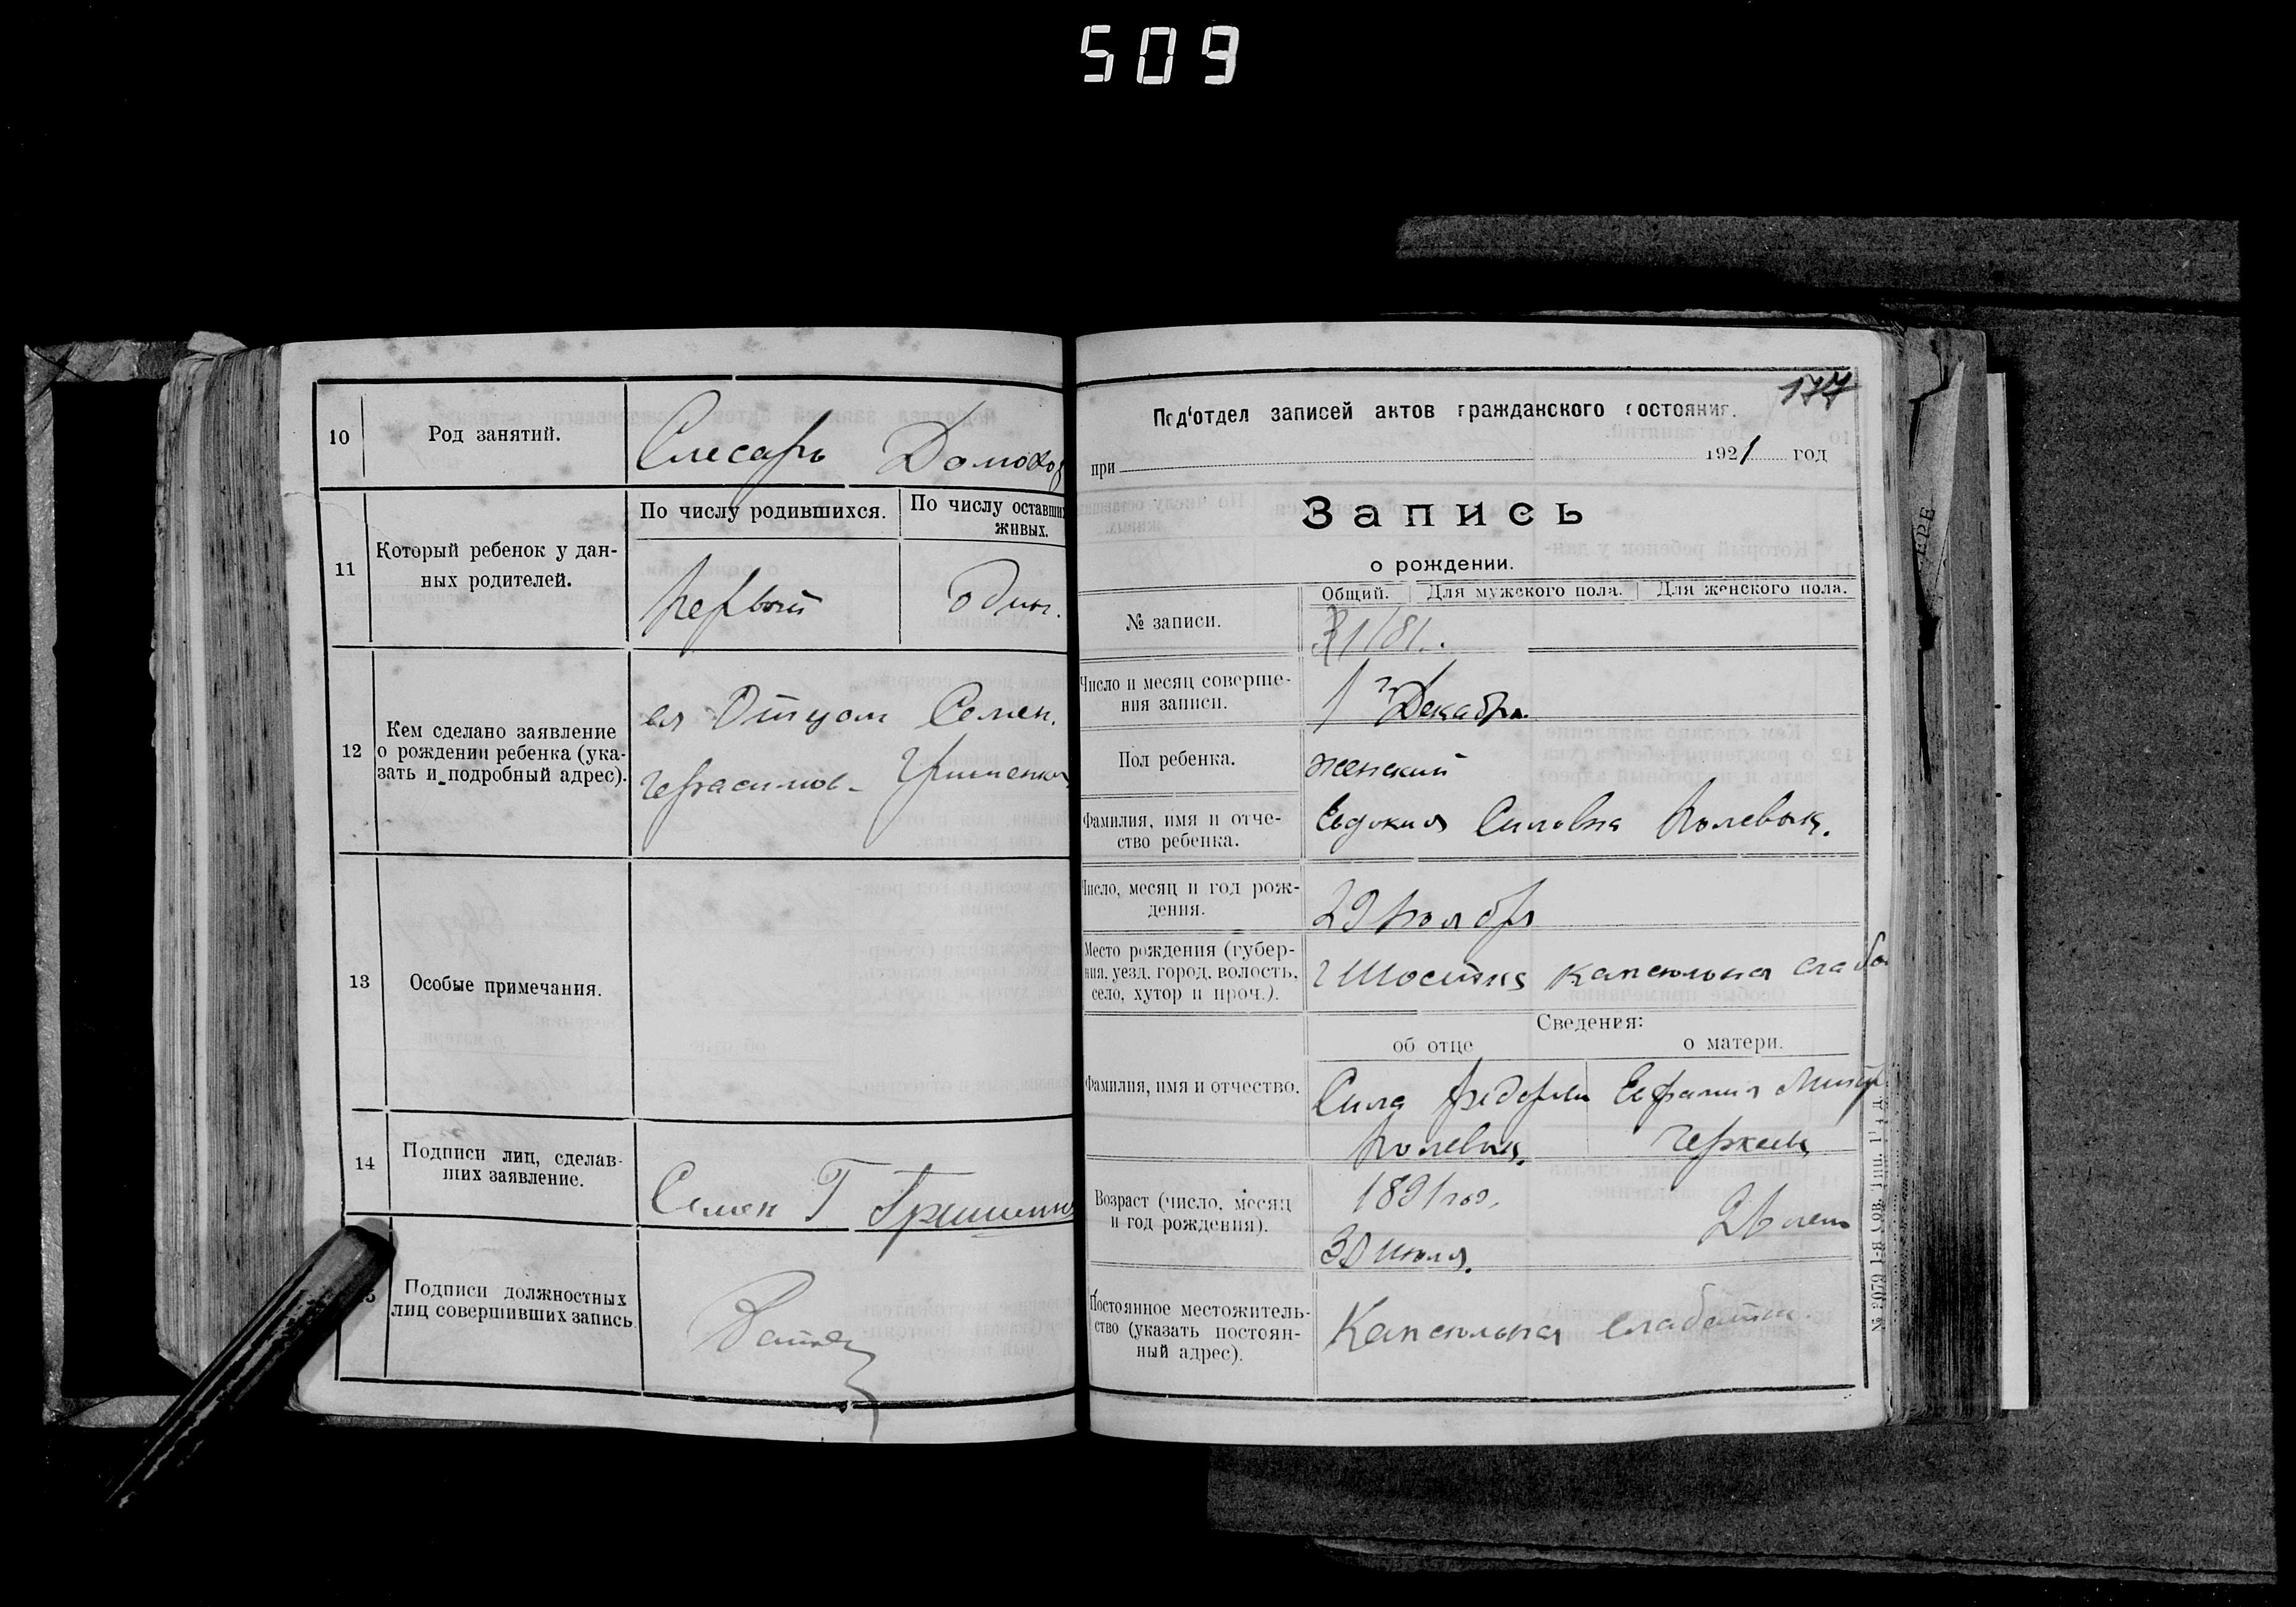 509
10 Род занятий. Слесарь Домохоз
11 Который ребенок у дан-
ных родителей.
По числу родившихся. По числу оставших
живых.
первый один.
12 Кем сделано заявление
о рождении ребенка (ука-
зать и подробный адрес).
ея Отцом Семен.
Герасимов. Гришенко
13 Особые примечания.
14 Подписи лиц, сделав-
ших заявление.
Семен Г Гришенко
Подписи должностных
лиц совершивших запись
177
Под'отдел записей актов гражданского состояния.
при 1921 год
Запись
о рождении.
Общий. Для мужского пола. Для женского пола.
№ записи.
Число и месяц соверше-
ния записи.
1 го Декабря
Пол ребенка. женский
Фамилия, имя и отче-
ство ребенка.
Евдокия Силовна Полевык.
Число, месяц и год рож-
дения.
29 ноября
Место рождения (губер-
ния, уезд, город, волость,
село, хутор и проч.).
г Шостка капсюльная слабо
Сведения:
об отце о матери.
Фамилия, имя и отчество.
Сила Федоров Евфамия
Полевык.
Возраст (число, месяц
и год рождения).
1891 год.
30 июля.
26 лет
Постоянное местожитель-
ство (указать постоян-
ный адрес).
Капсюльная слабодка
№ 2079 1-я Сов. Тип.